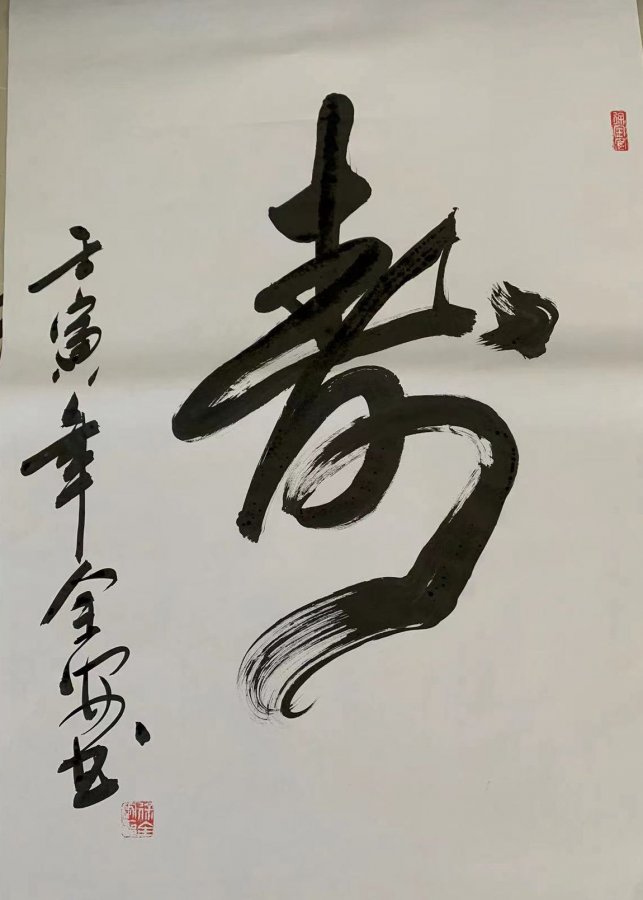 寿
壬寅年全安书